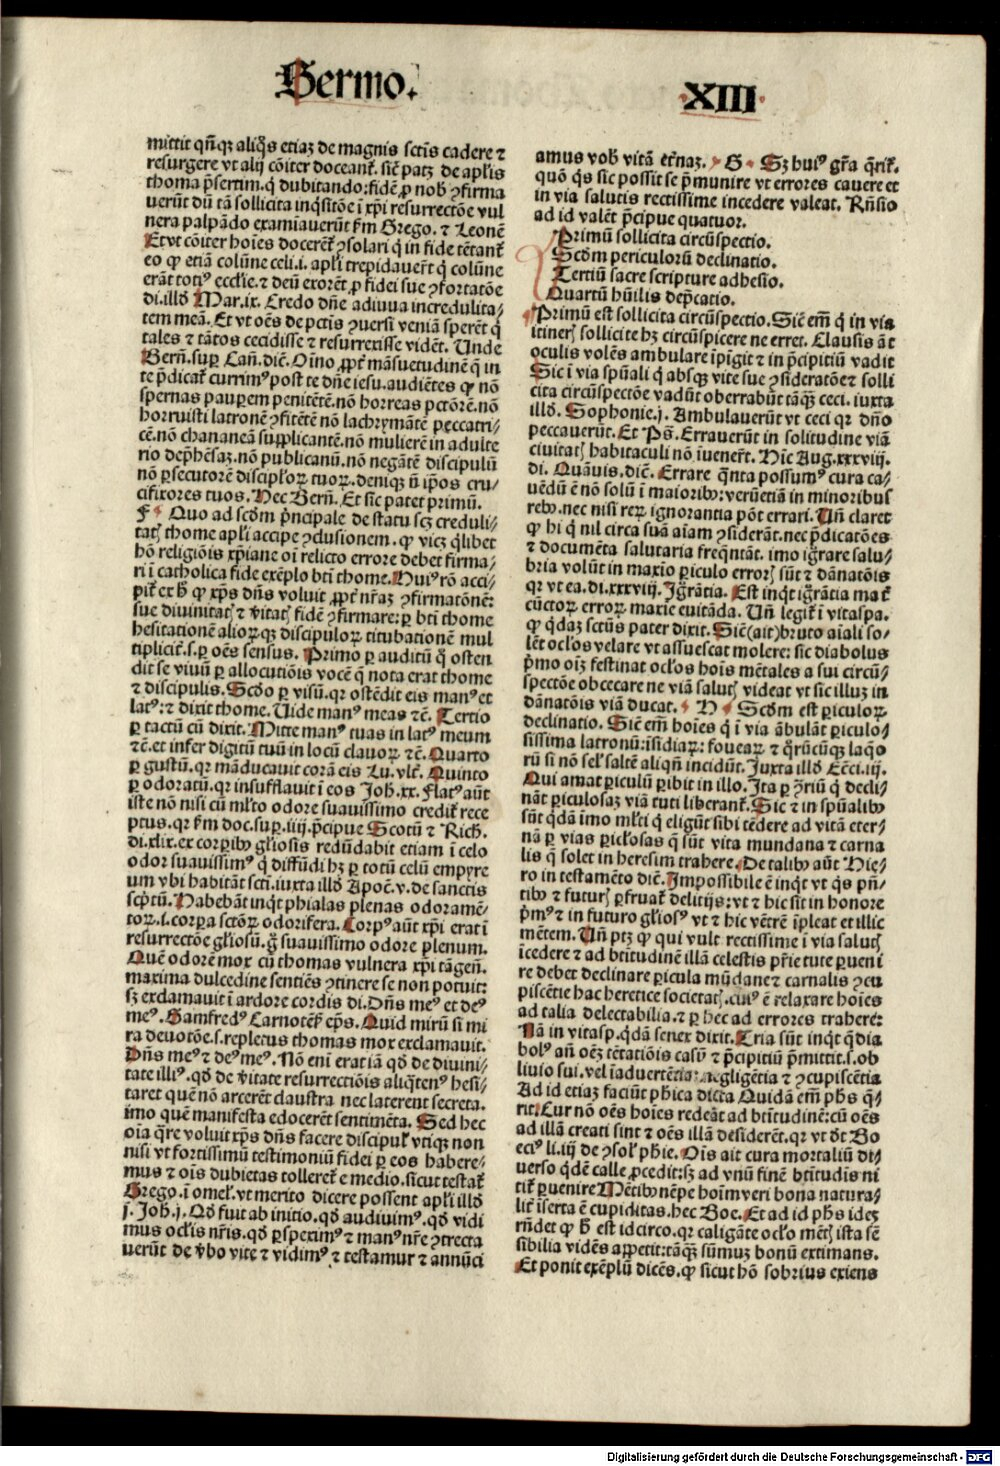 Sermo.
XIII
mittit qn̄qꝫ aliqͦs etiaꝫ de magnis sctīs cadere ⁊
resurgere vt alij cōiter doceant̄. sic̄ patꝫ de apl̄is
thoma p̄sertim. q̄ dubitando: fidē ꝓ nob̄ ꝯfirma
uerūt dū tā sollicita inq̄sitōe ī xp̄i resurrectōe vul
nera palpādo examīauerūt ẜm Grego. ⁊ Leonē
Et vt cōiter hoīes docerēt̄ ꝯsolari q̄ in fide tētant̄
eo ꝙ etiā colūne celi. i. apl̄i trepidauerr̄t q̄ colūne
erāt totiꝰ eccl̄ie. ⁊ deū exorēt̄ ꝓ fidei sue ꝯfortatōe
di. illd̄ Mar. ix. Credo dn̄e adiuua incredulita⸗
tem meā. Et vt oēs de pctīs ꝯuersi veniā sperēt q̄
tales ⁊ tātos cecidisse ⁊ resurrexisse vidēt. Unde
Bern̄. suꝑ Can̄. dic̄. Oīno ꝓpt̄ māsuetudinē q̄ in
te p̄dicat̄ currimꝰ post te dn̄e iesu. audiētes ꝙ nō
spernas pauꝑem penitētē. nō horreas pctōrē. nō
horruisti latronē ꝯfitētē nō lachrymātē peccatri⸗
cē. nō chananeā supplicantē. nō mulierē in adulte
rio dep̄hēsaꝫ. nō publicanū. nō negātē discipulū
nō ꝑsecutorē discipl̄oꝝ tuoꝝ. denicꝫ n̄ ip̄os cru⸗
cifixores tuos. Hec Bern̄. Et sic patet primū.
F Quo ad scd̄m p̄ncipale de statu scꝫ creduli⸗
tatꝭ thome apl̄i accipe ꝯclusionem. ꝙ vicꝫ q̄libet
hō religiōis xp̄iane oī relicto errore debet firma⸗
ri ī catholica fide exēplo bt̄i thome. Huiꝰ rō acci⸗
pit̄ ex h̄ ꝙ xp̄s dn̄s voluit ꝓpt̄ nr̄aꝫ ꝯfirmatōnē:
sue diuinitatꝭ ⁊ v̄itatꝭ fidē ꝯfirmare: ꝑ bt̄i thome
hesitationē alioꝝqꝫ discipuloꝝ titubationē mul
tiplicit̄. s. ꝑ oēs sensus. Primo ꝑ auditū q̄ osten
dit se viuū ꝑ allocutiōis vocē q̄ nota erat thome
⁊ discipulis. Scd̄o ꝑ visū. qꝛ ostēdit eis manꝰ et
latꝰ: ⁊ dixit thome. Uide manꝰ meas ⁊c̄. Tertio
ꝑ tactū cū dixit. Mitte manꝰ tuas in latꝰ meum
⁊c̄. et infer digitū tuū in locū clauoꝝ ⁊c̄. Quarto
ꝑ gustū. qꝛ māducauit corā eis Lu. vlt̄. Quinto
ꝑ odoratū. qꝛ insufflauit ī eos Joh̄. xx. Flatꝰ aūt
iste nō nisi cū ml̄to odore suauissimo credit̄ rece
ptus. qꝛ ẜm doc. suꝑ. iiij. p̄cipue Scotū ⁊ Rich̄.
di. xlix. ex corꝑibꝰ gl̄iosis redūdabit etiam ī celo
odor suauissimꝰ q̄ diffūdi hꝫ ꝑ totū celū empyre
um vbi habitāt sctī. iuxta illd̄ Apoc̄. v. de sanctis
scp̄tū. Habebāt inqͭ phialas plenas odoramē⸗
toꝝ. i. corꝑa sctōꝝ odorifera. Corpꝰ aūt xp̄i erat ī
resurrectōe gl̄iosū. g̊ suauissimo odore plenum.
Quē odorē mox cū thomas vulnera xp̄i tāgen̄.
maxima dulcedine sentiēs ꝯtinere se non potuit:
sꝫ exclamauit ī ardore cordis di. Dn̄s meꝰ et deꝰ
meꝰ. Gamfredꝰ Carnotēs̄ ep̄s. Quid mirū si mi
ra deuotōe. s. repletus thomas mox exclamauit.
Dn̄s meꝰ ⁊ deꝰ meꝰ. Nō enī erat iā qd̄ de diuini⸗
tate illiꝰ. qd̄ de v̄itate resurrectiōis aliq̄tenꝰ hesi⸗
taret quē nō arcerēt claustra nec laterent secreta.
imo quē manifesta edocerēt sentimēta. Sed hec
oīa q̄re voluit xp̄s dn̄s facere discipul̄ vtiqꝫ non
nisi vt fortissimū testimoniū fidei ꝑ eos habere⸗
mus ⁊ oīs dubietas tolleret̄ e medio. sicut testat̄
Grego. ī omel̄. vt merito dicere possent apl̄i illd̄
j. Joh̄. j. Qd̄ fuit ab initio. qd̄ audiuimꝰ. qd̄ vidi
mus ocl̄is nr̄is. qd̄ ꝑspeximꝰ ⁊ manꝰ nr̄e ꝯtrecta
uerūt de v̄bo vite ⁊ vidimꝰ ⁊ testamur ⁊ annūci
amus vob̄ vitā et̄naꝫ. G Sꝫ huiꝰ gr̄a q̄rit̄.
quō q̄s sic possit se p̄munire vt errores cauere et
in via salutis rectissime incedere valeat. Rn̄sio
ad id valēt p̄cipue quatuor.
Primū sollicita circūspectio.
Scd̄m periculorū declinatio.
Tertiū sacre scripture adhesio.
Quartū hūilis dep̄catio.
Primū est sollicita circūspectio. Sic̄ em̄ q̄ in via
itinerꝭ sollicite hꝫ circūspicere ne erret. Clausis āt
oculis volēs ambulare īpīgit ⁊ in p̄cipitiū vadit
Sic ī via spūali q̄ absqꝫ vite sue ꝯsideratōe ⁊ solli
cita circūspectōe vadūt oberrabūt tāqꝫ ceci. iuxta
illd̄. Sophonie. j. Ambulauerūt vt ceci qꝛ dn̄o
peccauerūt. Et Ps̄. Errauerūt in solitudine viā
ciuitatꝭ habitaculi nō iuener̄t. Hic̄ Aug. xxxviij.
di. Quāuis. dic̄. Errare q̄nta possumꝰ cura ca⸗
uēdū ē nō solū ī maioribꝰ: verūetiā in minoribus
rebꝰ. nec nisi reꝝ ignorantia pōt errari. Un̄ claret
ꝙ hi q̄ nil circa suā aīam ꝯsiderāt. nec p̄dicatōes
⁊ documēta salutaria freq̄ntāt. imo iḡrare salu⸗
bria volūt in maxīo ꝑiculo errorꝭ sūt ⁊ dānatōis
qꝛ vt ea. di. xxxviij. Iḡrātia. Est inqͭ iḡrātia mat̄
cūctoꝝ erroꝝ maxīe euitāda. Un̄ legit̄ ī vitaspa.
ꝙ q̄daꝫ sctūs pater dixit. Sic̄ (ait) bruto aīali so⸗
lēt ocl̄os velare vt assuescat molere: sic diabolus
p̄mo oīꝫ festinat ocl̄os hoīs mētales a sui circū⸗
spectōe obcecare ne viā salutꝭ videat vt sic illuꝫ in
dānatōis viā ducat. H Scd̄m est ꝑiculoꝝ
declinatio. Sic̄ em̄ hoīes q̄ ī via ābulāt ꝑiculo⸗
sissima latronū: īsidiaꝝ: foueaꝝ ⁊ q̄rūcūqꝫ laqͦo
rū si nō sel̄ saltē aliqn̄ incidūt. Juxta illd̄ Ec̄ci. iij.
Qui amat ꝑiculū ꝑibit in illo. Ita ꝑ ꝯriū q̄ decli⸗
nāt ꝑiculosaꝫ viā tuti liberant̄. Sic ⁊ in spūalibꝰ
sūt q̄dā imo ml̄ti q̄ eligūt sibi tēdere ad vitā eter⸗
nā ꝑ vias picl̄osas q̄ sūt vita mundana ⁊ carna
lis q̄ solet in heresim trahere. De talibꝰ aūt Hie⸗
ro in testamēto dic̄. Impossibile ē inqͭ vt q̄s pn̄⸗
tibꝰ ⁊ futurꝭ ꝑfruat̄ delitijs: vt ⁊ hic sit in honore
p̄mꝰ ⁊ in futuro gl̄iosꝰ vt ⁊ hic vētrē īpleat et illic
mētem. Un̄ ptꝫ ꝙ qui vult rectissime ī via salutꝭ
īcedere ⁊ ad bt̄itudinē illā celestis pr̄ie tute ꝑueni
re debet declinare ꝑicula mūdane ⁊ carnalis ꝯcu
piscētie hac heretice societatꝭ. cuiꝰ ē relaxare hoīes
ad talia delectabilia. ⁊ ꝑ hec ad errores trahere:
Nā in vitasp. q̄dā senex dixit. Tria sūt inqͭ q̄ dia
bolꝰ an̄ oēꝫ tētatiōis casū ⁊ p̄cipitiū p̄mittit. s. ob
liuio sui. vel īaduertētia: negligētia ⁊ ꝯcupiscētia
Ad id etiaꝫ faciūt ph̄ica dicta Quidā em̄ ph̄s q̄⸗
rit. Cur nō oēs hoīes redeāt ad bt̄itudinē: cū oēs
ad illā creati sint ⁊ oēs illā desiderēt. qꝛ vt d̄t Bo
eciꝰ li. iij de ꝯsol̄ ph̄ie. Oīs ait cura mortaliū di⸗
uerso q̄dē calle ꝓcedit: sꝫ ad vnū finē bt̄itudīs ni
tit̄ ꝑuenire Mētibꝰ nēpe hoīm veri bona natura⸗
lit̄ īserta ē cupiditas. hec Boe. Et ad id ph̄s ideꝫ
rn̄det ꝙ h̄ est idcirco. qꝛ caligāte ocl̄o mētꝭ ista sē
sibilia vidēs appetit: tāqꝫ sūmuꝫ bonū extimans.
Et ponit exēplū dicēs. ꝙ sicut hō sobrius exiens
Digitalisierung gefördert durch die Deutsche Forschungsgemeinschaft - DFG